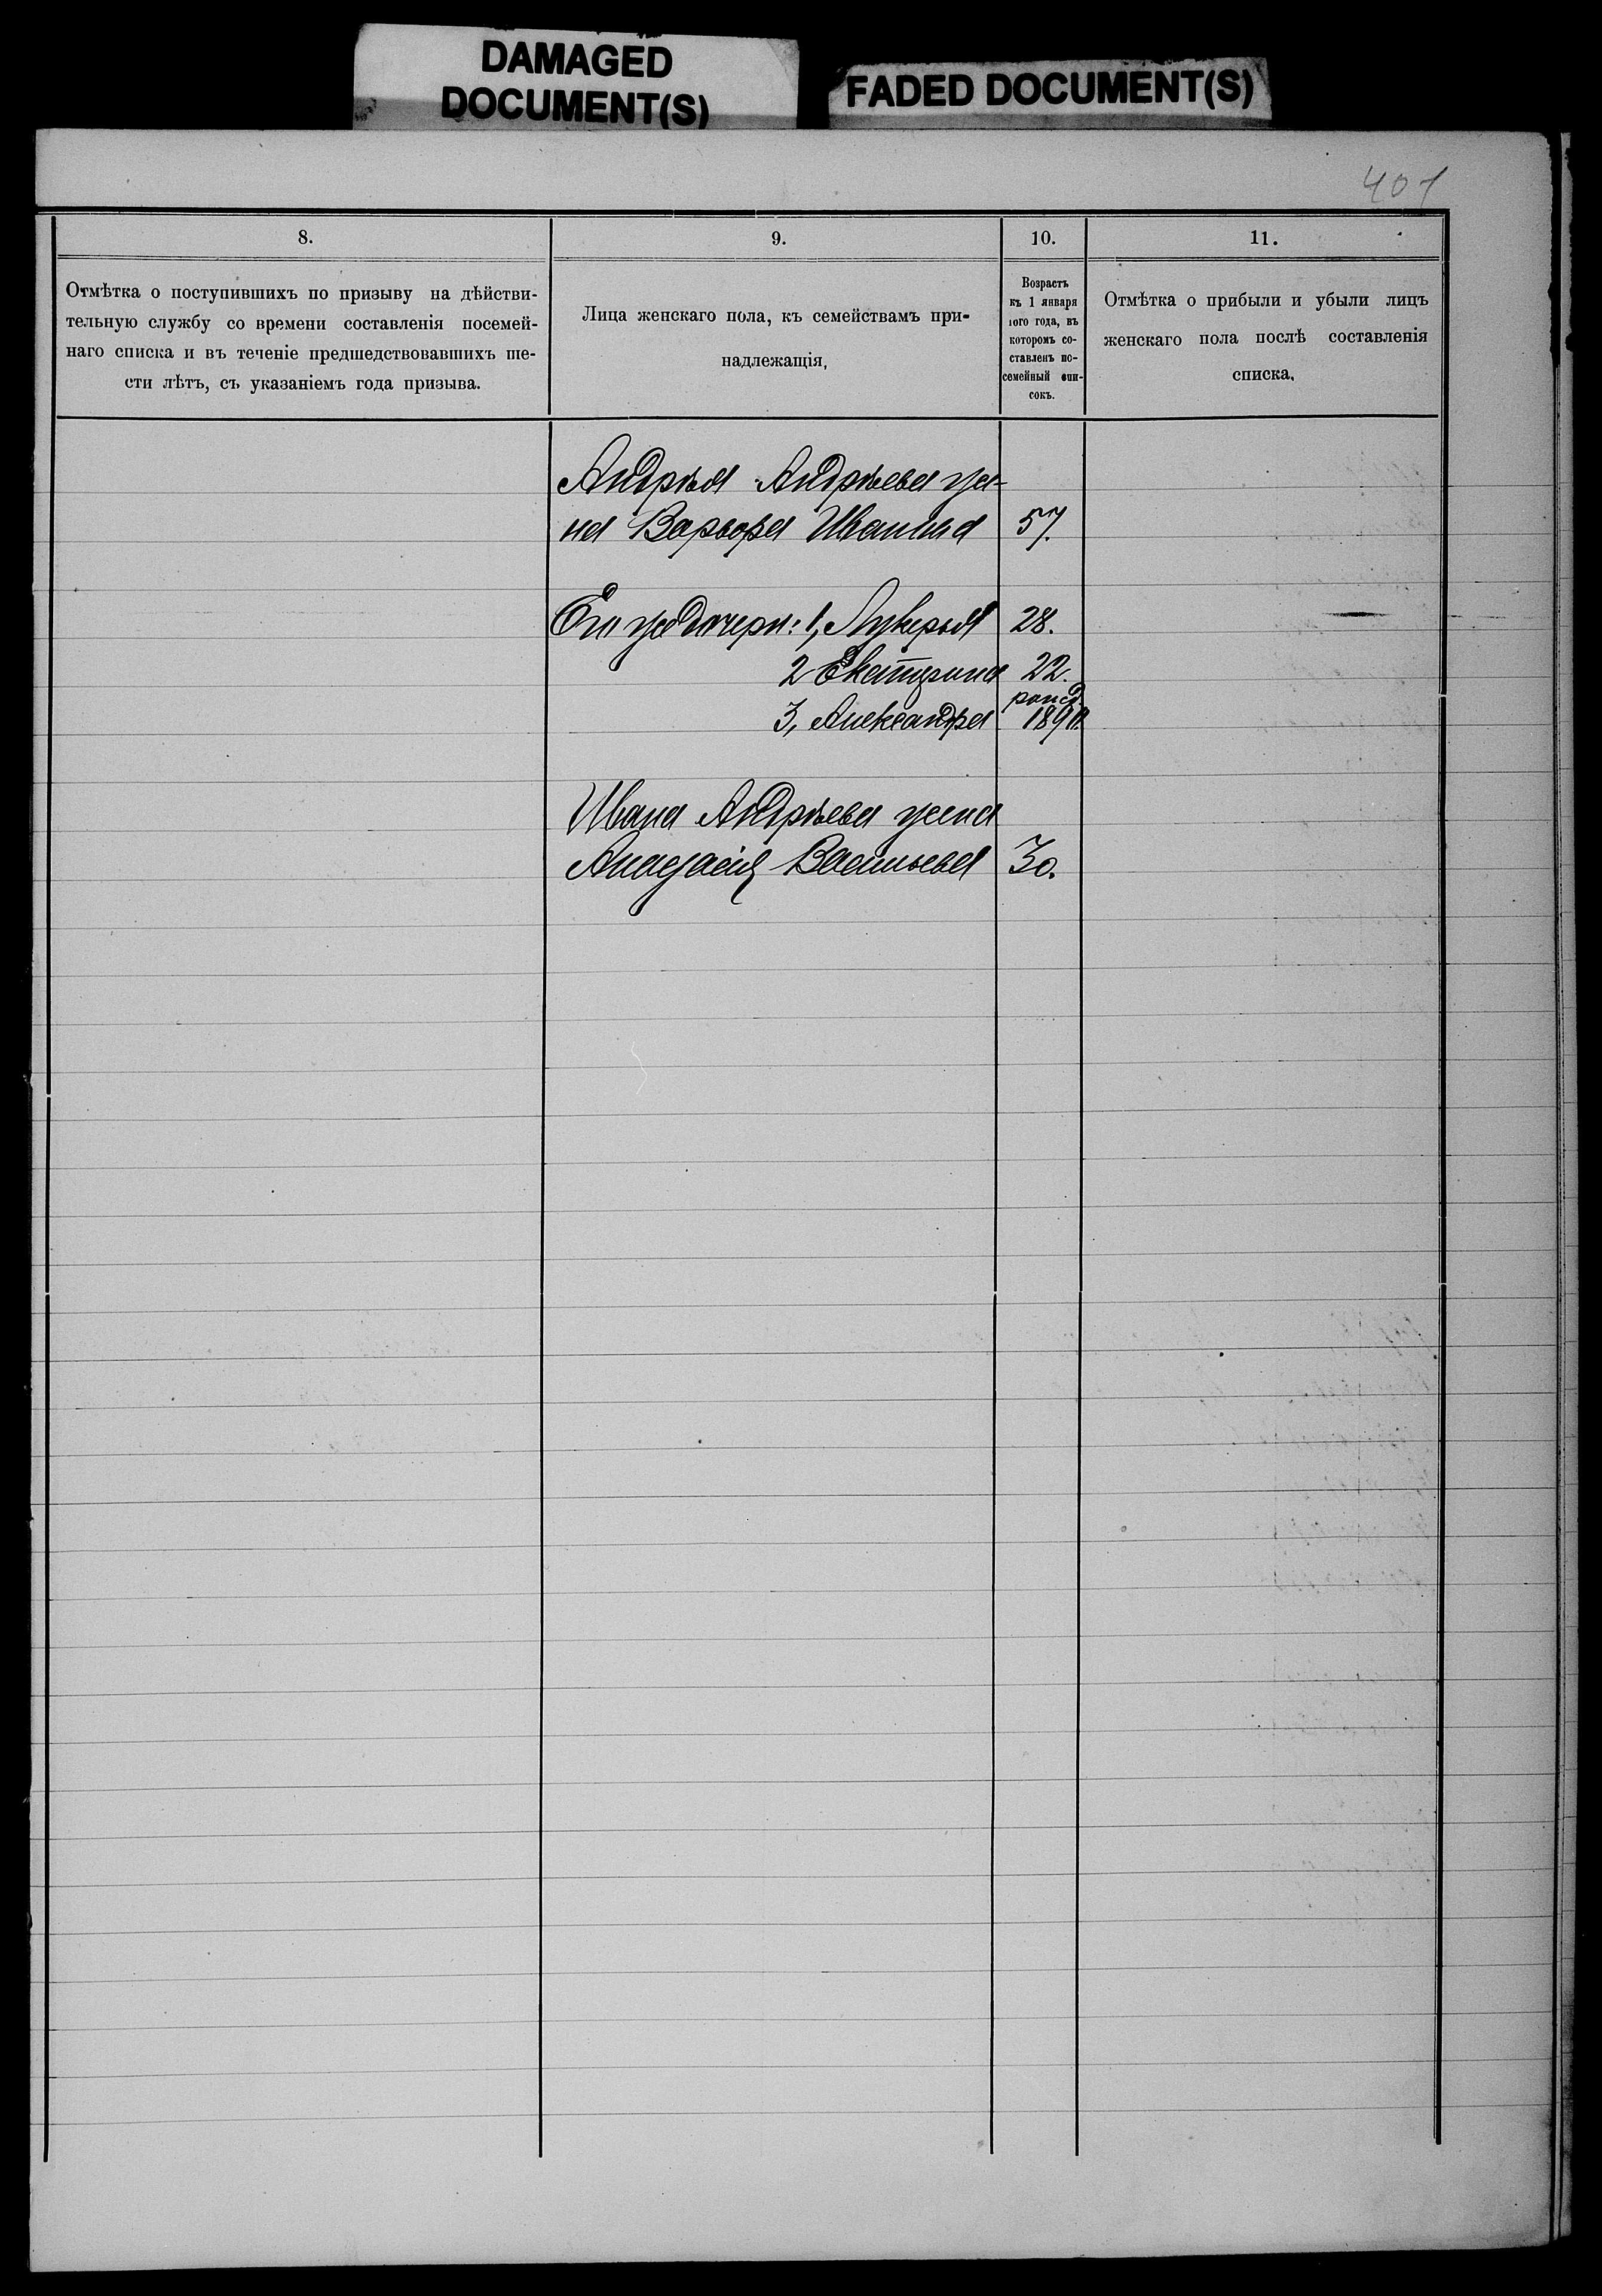 DAMAGED
DOCUMENT(S)
FADED DOCUMENT(S)
401
8.
9.
10.
11.
Отмѣтка о поступившихъ по призыву на дѣйстви-
тельную службу со времени составленія посемей-
наго списка и въ теченіе предшедствовавшихъ ше-
сти лѣтъ, съ указаніемъ года призыва.
Лица женскаго пола, къ семействамъ при-
надлежащія,
Возрастъ
къ 1 января
того года, въ
которомъ со-
ставленъ по-
семейный спи-
сокъ.
Отмѣтка о прибыли и убыли лицъ
женскаго пола послѣ составленія
списка.
Андрѣя Андрѣева же-
на Варвара Иванова 57.
Его же дочери: 1, Лукерья 28.
2 Екатерина 22.
3, Александра 1891.
Ивана Андрѣева жена
Анастасія Васильева 30.